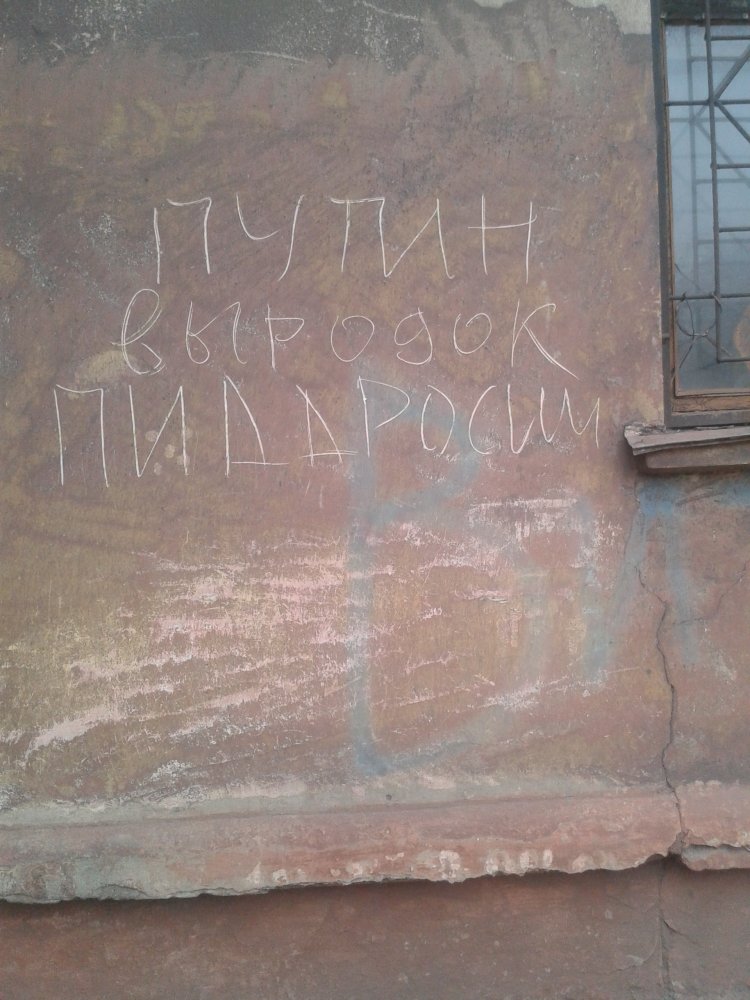 ПУТИН
выродок
ПИДДРОСИИ